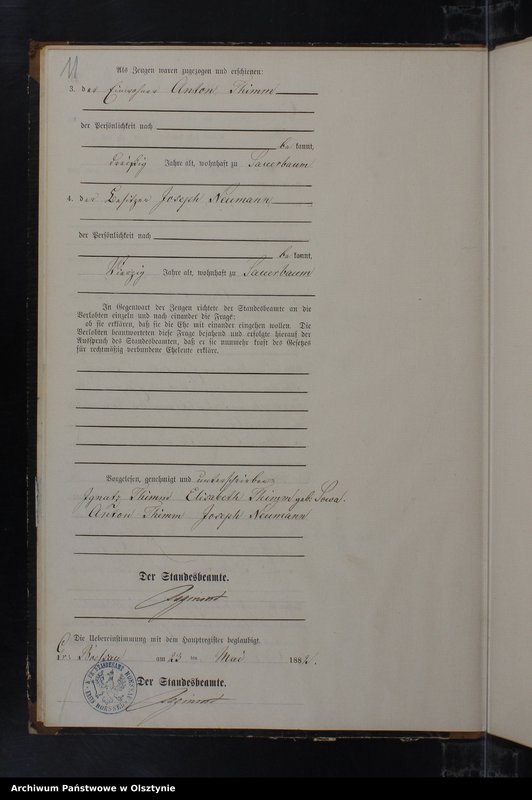 11
Als Zeugen waren zugezogen und erschienen:
3. der Einwohner Anton Thimm
der Persönlichkeit nach
be kannt,
dreißig Jahre alt, wohnhaft zu Sauerbaum
4. der Besitzer Joseph Neumann
der Persönlichkeit nach
be kannt,
Vierzig Jahre alt, wohnhaft zu Sauerbaum
In Gegenwart der Zeugen richtete der Standesbeamte an die
Verlobten einzeln und nach einander die Frage:
ob sie erklären, daß sie die Ehe mit einander eingehen wollen. Die
Verlobten beantworteten diese Frage bejahend und erfolgte hierauf der
Ausspruch des Standesbeamten, daß er sie nunmehr kraft des Gesetzes
für rechtmäßig verbundene Eheleute erkläre.
Vorgelesen, genehmigt und unterschrieben
Ignatz Thimm Elisabeth Thimm geb. Sowa.
Anton Thimm Joseph Neumann
Der Standesbeamte.
Die Uebereinstimmung mit dem Hauptregister beglaubigt.
am 23 ten Mai 1882.
Der Standesbeamte.
Archiwum Państwowe w Olsztynie